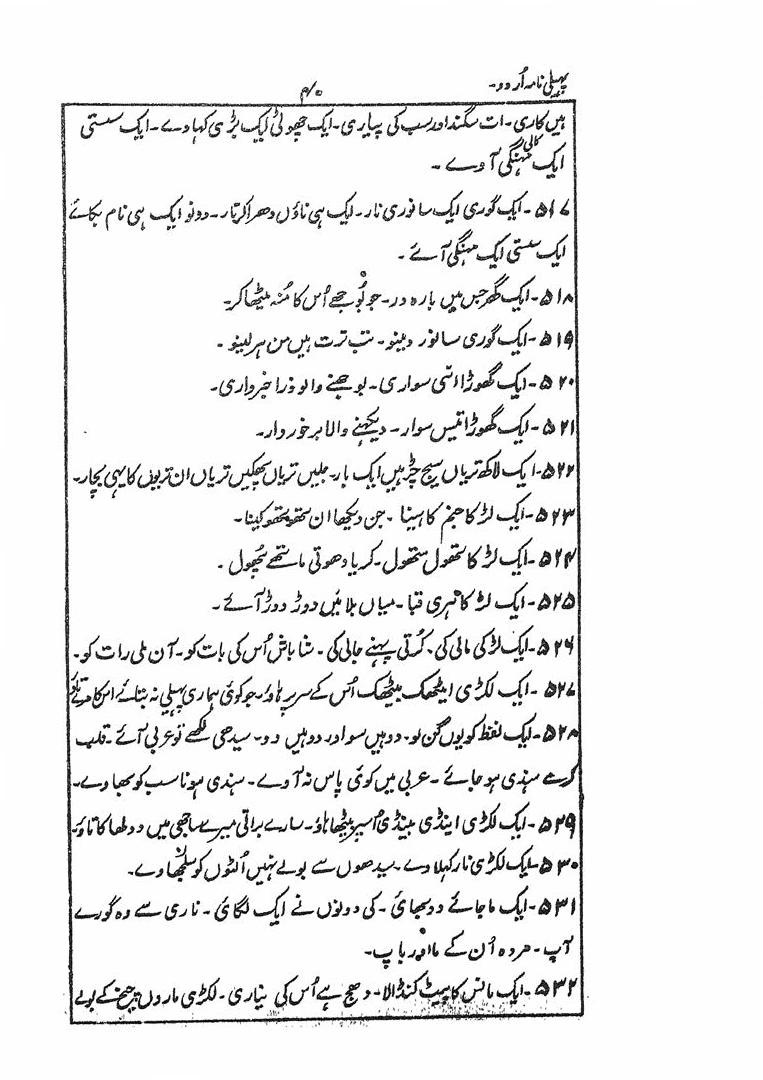 پہیلی نامہ اُردو۔
۴۰
ہیں کاری۔ ات سگند اور سب کی پیاری۔ ایک چھوٹی ایک بڑی کہاوے۔ ایک سستی
ایک مہنگی آوے۔
۵۱۷۔ ایک گوری ایک سانوری نار۔ ایک ہی ناؤں دھرا کرتار۔ دونو ایک ہی نام بکائے
ایک سستی ایک مہنگی آئے۔
۵۱۸۔ ایک گھر جس میں بارہ در۔ جو بُوجھے اُس کا مُنہ میٹھا کر۔
۵۱۹۔ ایک گوری سانور دینو۔ تب ترت ہیں من ہر لینو۔
۵۲۰۔ ایک گھوڑا اسّی سواری۔ بوجھنے والو ذرا خبرداری۔
۵۲۱۔ ایک گھوڑا تیس سوار۔ دیکھنے والا برخوردار۔
۵۲۲۔ ایک لاکھ تریاں سیج چڑہیں ایک بار۔ جلیں تریاں پھکیں تریاں ان تریوں کا یہی بچار۔
۵۲۳۔ ایک لڑکا جنم کا ہینا۔ جن دیکھا ان تھو تھو کینا۔
۵۲۴۔ ایک لڑکا تھول متھول۔ کریا دھوتی ماتھے پھول۔
۵۲۵۔ ایک لڑکا نہری قبا۔ میاں بلائیں دوڑ دوڑ آئے۔
۵۲۶۔ ایک لڑکی مالی کی۔ کُرتی پہنے جالی کی۔ شاباش اُس کی بات کو۔ آن ملی رات کو۔
۵۲۷۔ ایک لکڑی اینٹھک بیٹھک اُس کے سر پر ہاؤ۔ جو کوئی ہماری پہلی نہ بتائے اس کا
۵۲۸۔ ایک لفظ کو یوں گن لو۔ دو ہیں سو اور دو ہیں دو۔ سیدھی لکھے تو عربی آئے۔ قلب
کرے ہندی ہو جائے۔ عربی میں کوئی پاس نہ آوے۔ ہندی ہونا سب کو بھاوے۔
۵۲۹۔ ایک لکڑی اینڈی بینڈی اُسپر بیٹھا ہاؤ۔ سارے براتی میرے ساجھی میں دولھا کا تاؤ۔
۵۳۰۔ ایک لکڑی نار کہلاوے۔ سیدھوں سے بولے نہیں اُلٹوں کو سلجھاوے۔
۵۳۱۔ ایک ما جائے دو بھائی۔ کی دونوں نے ایک لگائی۔ ناری سے وہ گورے
آپ۔ مردہ اُن کے ما اور باپ۔
۵۳۲۔ ایک مانس کا پیٹ کنڈالا۔ دھج ہے اُس کی نیاری۔ لکڑی ماروں چیخ کے بولے